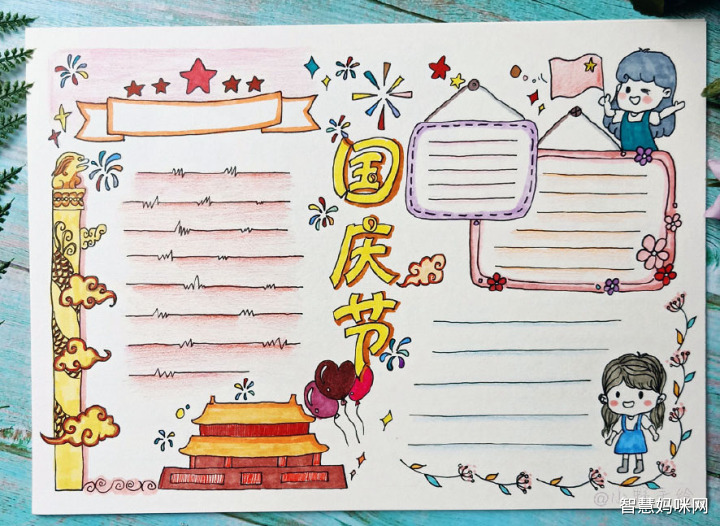 国庆节
智慧妈咪网